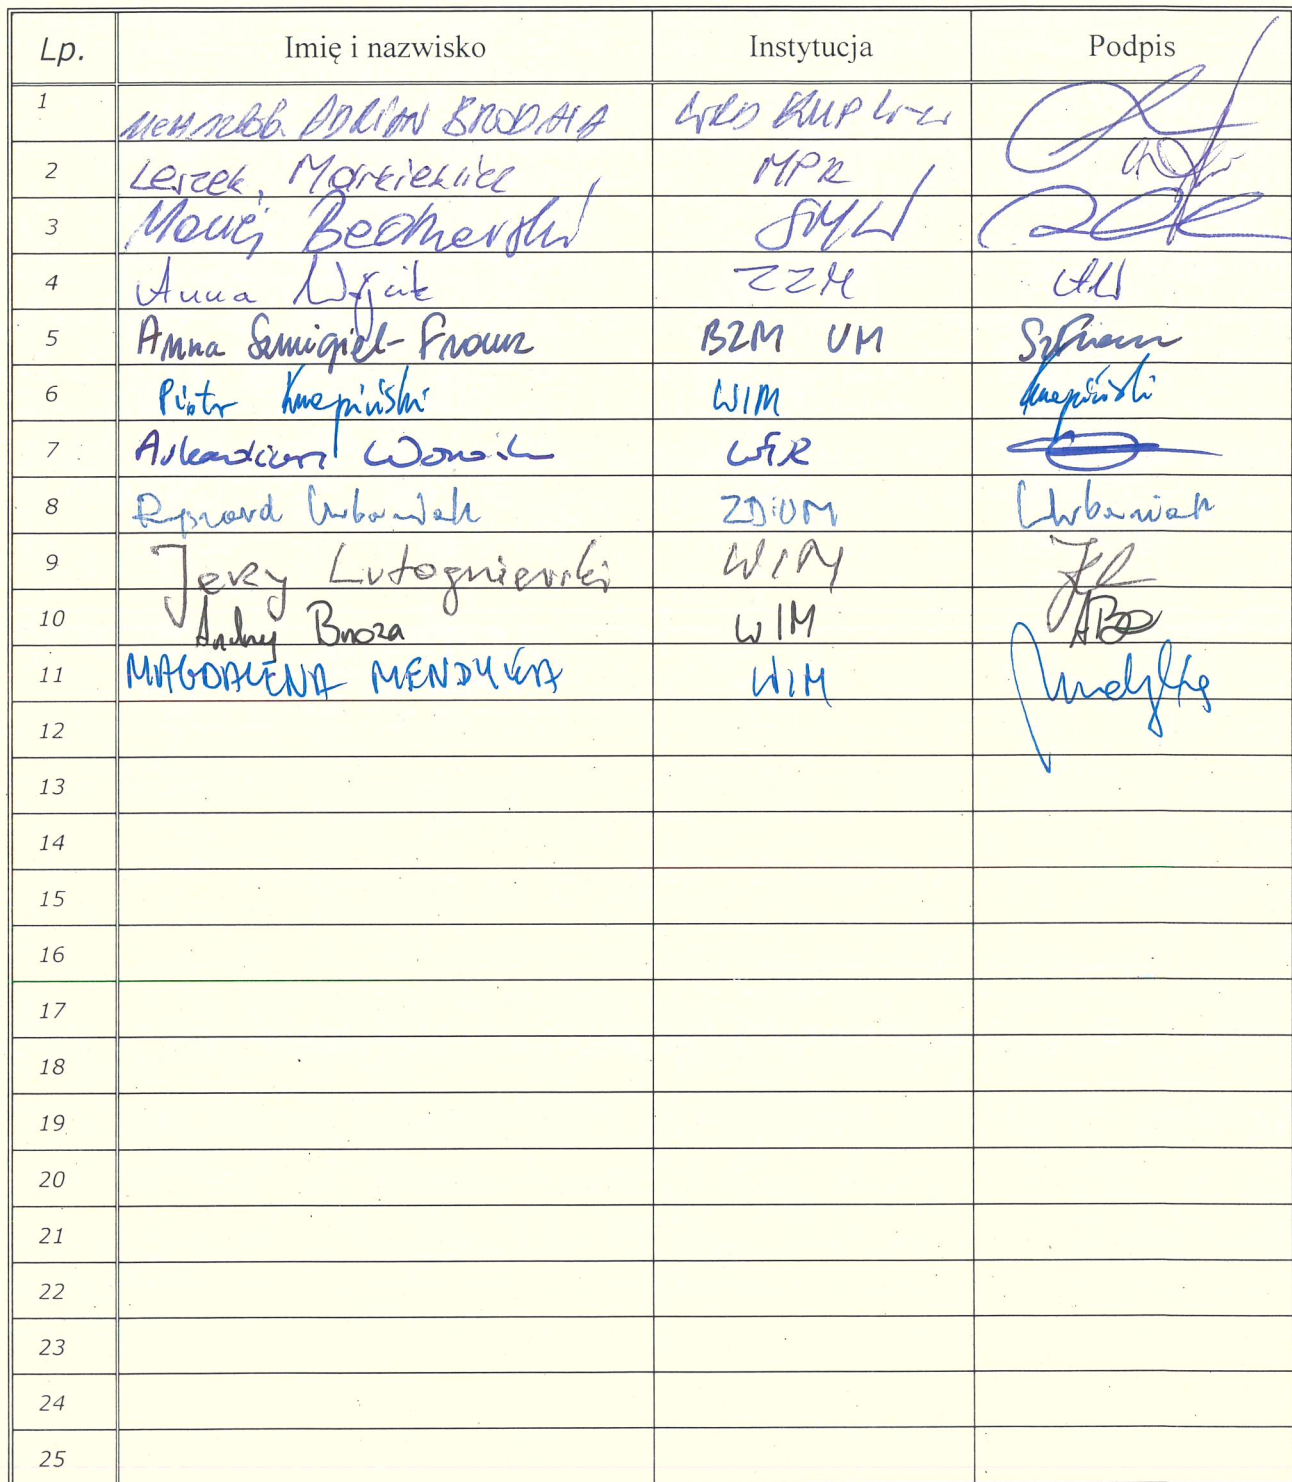 Lp. Imię i nazwisko Instytucja Podpis
1 ADRIAN BRODALA WRD KMP
2 Leszek, Markiewicz MPK
3 Maciej Bednarski SMW
4 Anna Wójcik ZZM AW
5 Anna Szmigiel-Franz BZM UM
6 Piotr Knapiński WIM Knapiński
7 Arkadiusz
8 Ryszard Urbaniak ZDiUM Urbaniak
9 Jerzy Lutogniewski WIM JL
10 Andrzej Broza WIM
11 MAGDALENA MENDYKA WIM Mendyka
12
13
14
15
16
17
18
19
20
21
22
23
24
25